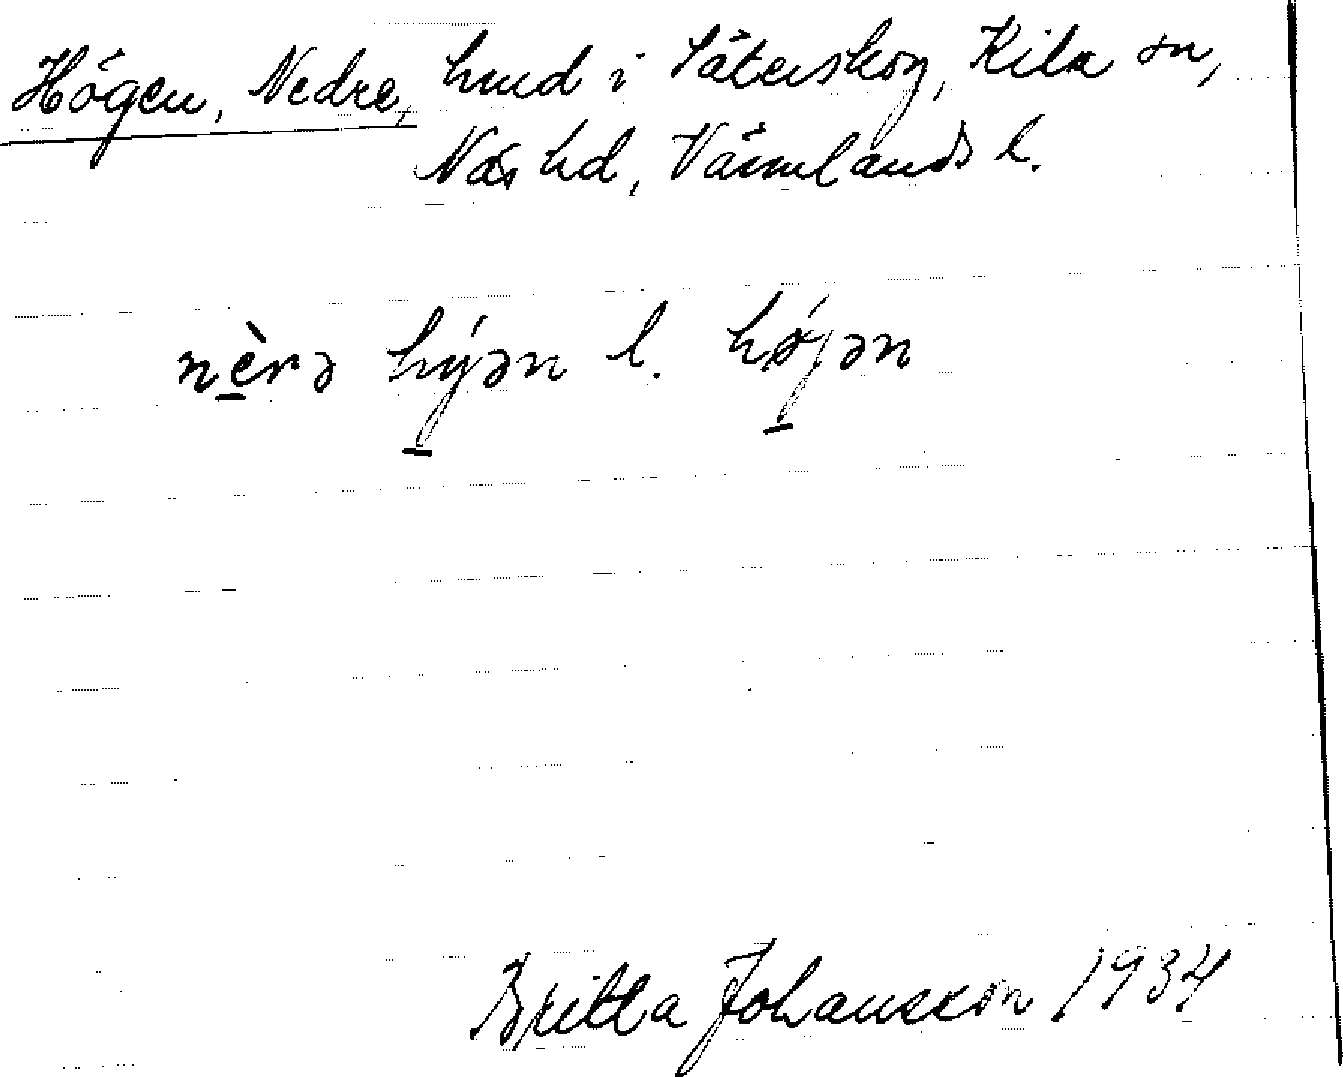 Högen, Nedre, hmd i Säterskog, Kila sn,
Näs hd, Värmlands l.
nèrə hýən l. hǿjən
Britta Johansson 1934